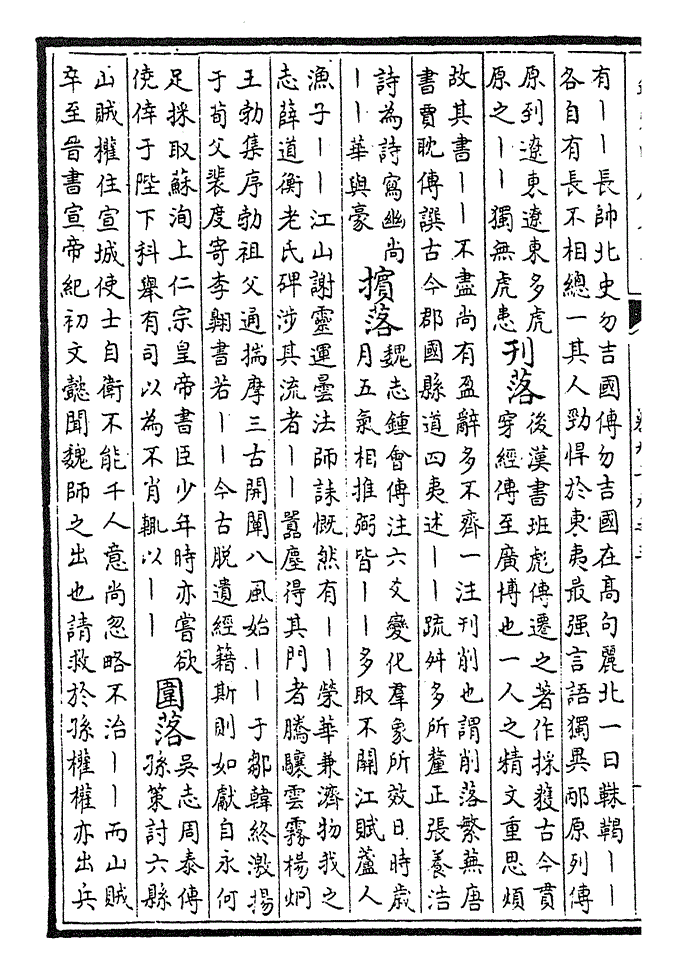 有——長帥北史勿吉國傳勿吉國在髙句麗北一曰靺鞨——
各自有長不相總一其人勁悍於東夷最强言語獨異邴原列傳
原到遼東遼東多虎
原之——獨無虎患
刋落
後漢書班彪傳遷之著作採獲古今貫
穿經傳至廣博也一人之精文重思煩
故其書——不盡尚有盈辭多不齊一注刋削也謂削落繁蕪唐
書賈耽傳譔古今郡國縣道四夷述——疏舛多所釐正張養浩
詩為詩寫幽尚
——華與豪
擯落
魏志鍾㑹傳注六爻變化羣象所效日時歳
月五氣相推弼皆——多取不關江賦蘆人
漁子——江山謝靈運曇法師誄慨然有——榮華兼濟物我之
志薛道衡老氏碑涉其流者——囂塵得其門者騰驤雲霧楊炯
王勃集序勃祖父通揣摩三古開闡八風始——于鄒韓終激揚
于荀父裴度寄李翺書若——今古脱遺經籍斯則如獻自永何
足採取蘇洵上仁宗皇帝書臣少年時亦嘗欲
僥倖于陛下科舉有司以為不肖輒以——
圍落
吴志周泰傳
孫策討六縣
山賊權住宣城使士自衛不能千人意尚忽略不治——而山賊
卒至晉書宣帝紀初文懿聞魏師之出也請救於孫權權亦出兵